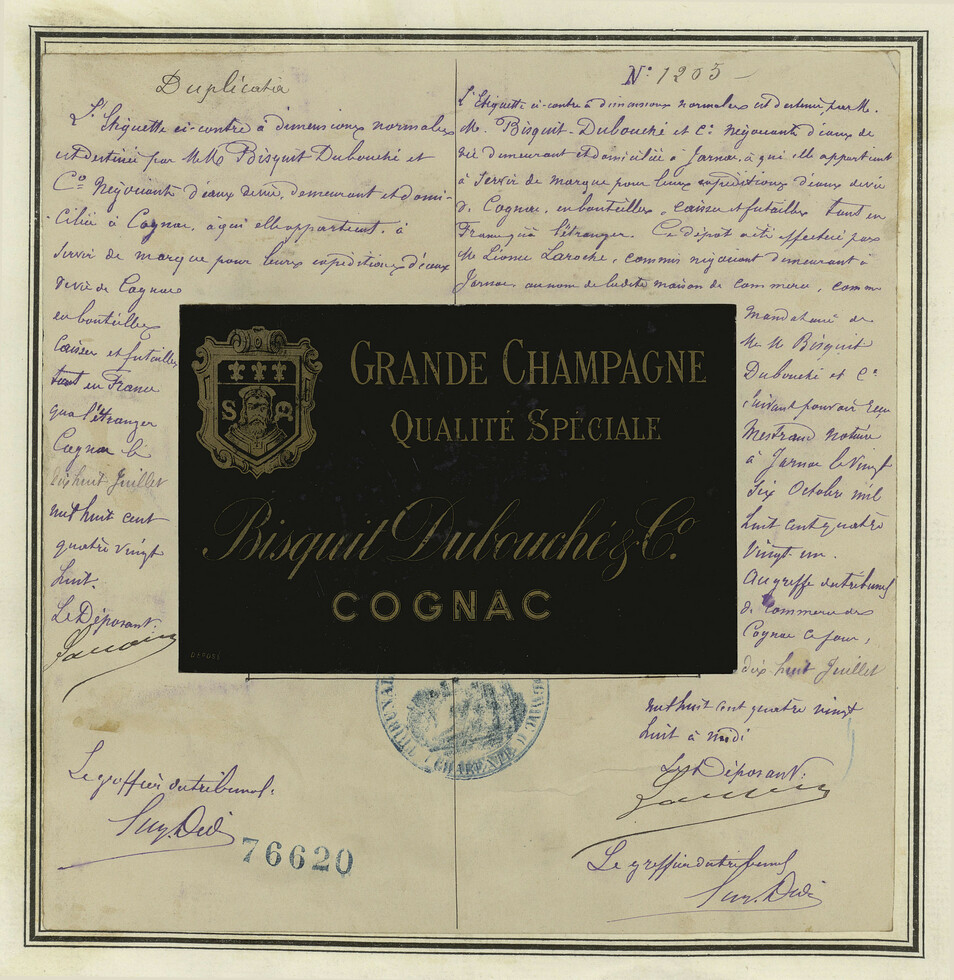 Duplicata
L'Etiquette ci-contre à dimensions normales
est destinée par M.M. Bisquit Dubouché et
Cº Négociants d'eaux de vie, demeurant et domi-
ciliés à Cognac, à qui elle appartient, à
servir de marque pour leurs expéditions d'eaux
de vie de Cognac
en bouteilles
Caisses et futailles
tant en France
qu'à l'étranger
Cognac le
dix huit Juillet
mil huit cent
quatre vingt
huit.
Le Déposant:
Le greffier du tribunal:
76620
Nº 1205
L'Etiquette ci-contre à dimensions normales est destinée par M.
M. Bisquit-Dubouché et Cº Négociants d'eaux de
vie demeurant et domiciliés à Jarnac, à qui elle appartient
à servir de marque pour leurs expéditions d'eaux de vie
de Cognac, en bouteilles, caisses et futailles tant en
France qu'à l'étranger. Ce dépôt a été effectué par
M. Laroche, commis négociant demeurant à
Jarnac, au nom de ladite maison de commerce, comme
Mandataire de
M. M. Bisquit
Dubouché et Cº
suivant pouvoir reçu
Mestraud notaire
à Jarnac le vingt
six Octobre mil
huit cent quatre
vingt-un.
Au greffe du tribunal
de commerce de
Cognac ce jour,
dix huit Juillet
mil huit cent quatre vingt
huit à midi
Le Déposant:
Le greffier du tribunal
GRANDE CHAMPAGNE
QUALITÉ SPÉCIALE
Bisquit Dubouché & Cº.
COGNAC
TRIBUNAL
CHARENTE